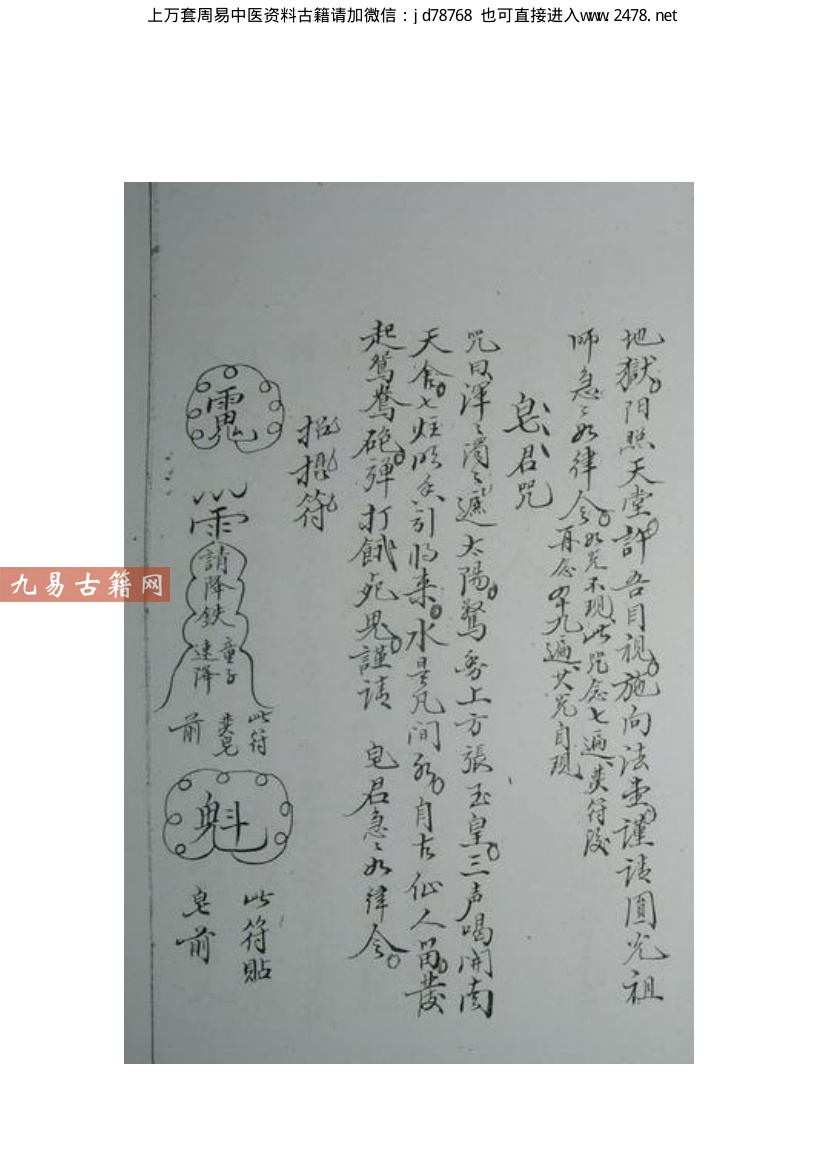 上万套周易中医资料古籍请加微信：jd78768 也可直接进入www.2478.net
地獄陰陽照天堂許吾目視施向法壹謹請圓光祖
師急〻如律令如光不現此咒念七遍焚符後
再念四十九遍其光自現
皂君咒
咒曰渾〻濁〻遮太陽驚動上方張玉皇三声喝開南
天舍七炷明香引将来水是凡間水自古仙人留發
起鴛鴦砲弹打餓死鬼謹請 皂君急〻如律令
招摁符
請降鉄
童子
速降
此符
焚皂
前
魁
此符貼
皂前
九易古籍网